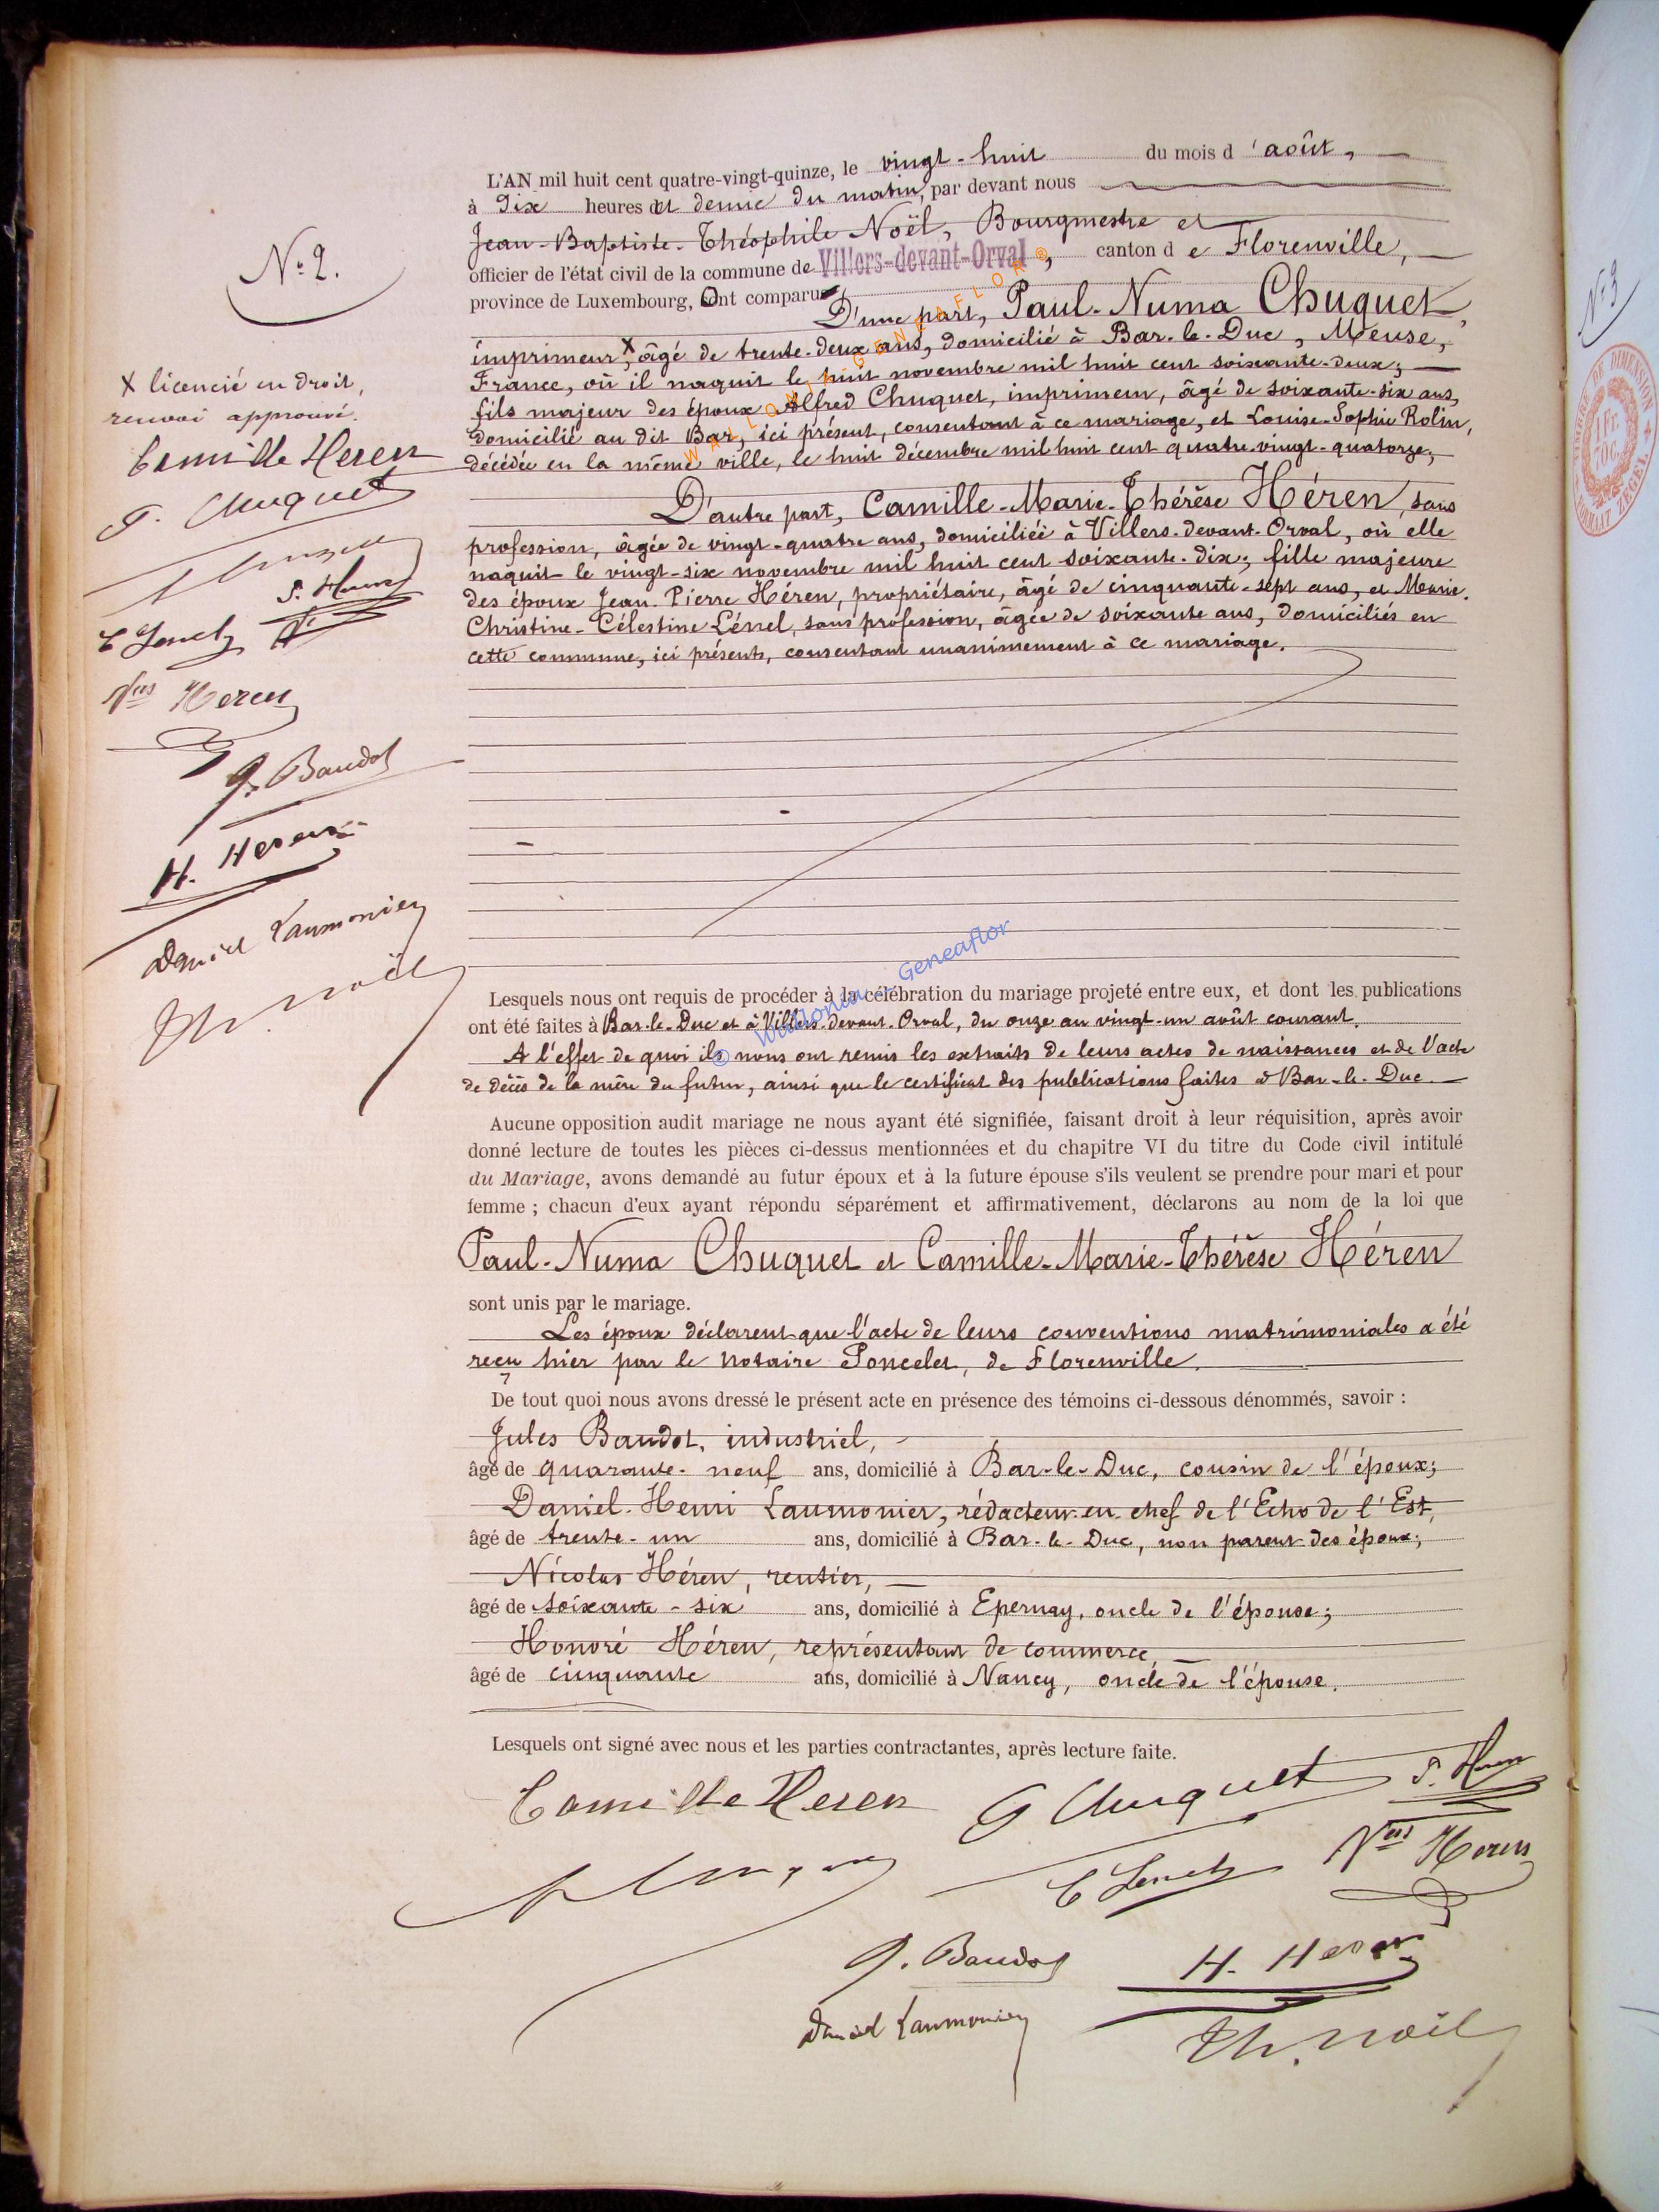 N° 2.
L'AN mil huit cent quatre-vingt-quinze, le vingt-huit du mois d'août,
à dix heures et demie du matin, par devant nous
Jean-Baptiste-Théophile Noël, Bourgmestre et
officier de l'état civil de la commune de Villers-devant-Orval, canton de Florenville,
province de Luxembourg, Ont comparu
D'une part, Paul-Numa Chuquet,
imprimeur X, âgé de trente-deux ans, domicilié à Bar-le-Duc, Meuse,
France, où il naquit le huit novembre mil huit cent soixante-deux;
fils majeur des époux Alfred Chuquet, imprimeur, âgé de soixante-six ans,
domicilié au dit Bar, ici présent, consentant à ce mariage, et Louise-Sophie Rolin,
décédée en la même ville, le huit décembre mil huit cent quatre-vingt-quatorze;
D'autre part, Camille-Marie-Thérèse Héren, sans
profession, âgée de vingt-quatre ans, domiciliée à Villers-devant-Orval, où elle
naquit le vingt-six novembre mil huit cent soixante-dix; fille majeure
des époux Jean-Pierre Héren, propriétaire, âgé de cinquante-sept ans, et Marie-
Christine-Célestine Lénel, sans profession, âgée de soixante ans, domiciliés en
cette commune, ici présents, consentant unanimement à ce mariage.
X licencié en droit,
renvoi approuvé.
Camille Heren
P. Chuquet
P. Heren
Nas Heren
J. Baudot
H. Heren
Daniel Laumonier
Th. Noël
Lesquels nous ont requis de procéder à la célébration du mariage projeté entre eux, et dont les publications
ont été faites à Bar-le-Duc et à Villers-devant-Orval, du onze au vingt-un août courant.
A l'effet de quoi ils nous ont remis les extraits de leurs actes de naissances et de l'acte
de décès de la mère du futur, ainsi que le certificat des publications faites à Bar-le-Duc.
Aucune opposition audit mariage ne nous ayant été signifiée, faisant droit à leur réquisition, après avoir
donné lecture de toutes les pièces ci-dessus mentionnées et du chapitre VI du titre du Code civil intitulé
du Mariage, avons demandé au futur époux et à la future épouse s'ils veulent se prendre pour mari et pour
femme ; chacun d'eux ayant répondu séparément et affirmativement, déclarons au nom de la loi que
Paul-Numa Chuquet et Camille-Marie-Thérèse Héren
sont unis par le mariage.
Les époux déclarent que l'acte de leurs conventions matrimoniales a été
reçu hier par le notaire Poncelet, de Florenville.
De tout quoi nous avons dressé le présent acte en présence des témoins ci-dessous dénommés, savoir :
Jules Baudot, industriel,
âgé de quarante-neuf ans, domicilié à Bar-le-Duc, cousin de l'époux;
Daniel-Henri Laumonier, rédacteur-en-chef de l'Echo de l'Est,
âgé de trente-un ans, domicilié à Bar-le-Duc, non parent des époux;
Nicolas Héren, rentier,
âgé de soixante-six ans, domicilié à Epernay, oncle de l'épouse;
Honoré Héren, représentant de commerce,
âgé de cinquante ans, domicilié à Nancy, oncle de l'épouse.
Lesquels ont signé avec nous et les parties contractantes, après lecture faite.
Camille Heren
Chuquet
P. Heren
Nas Heren
J. Baudot
H. Heren
Daniel Laumonier
Th. Noël
© Wallonia - Geneaflor
N° 3
TIMBRE DE DIMENSION
1 FR.